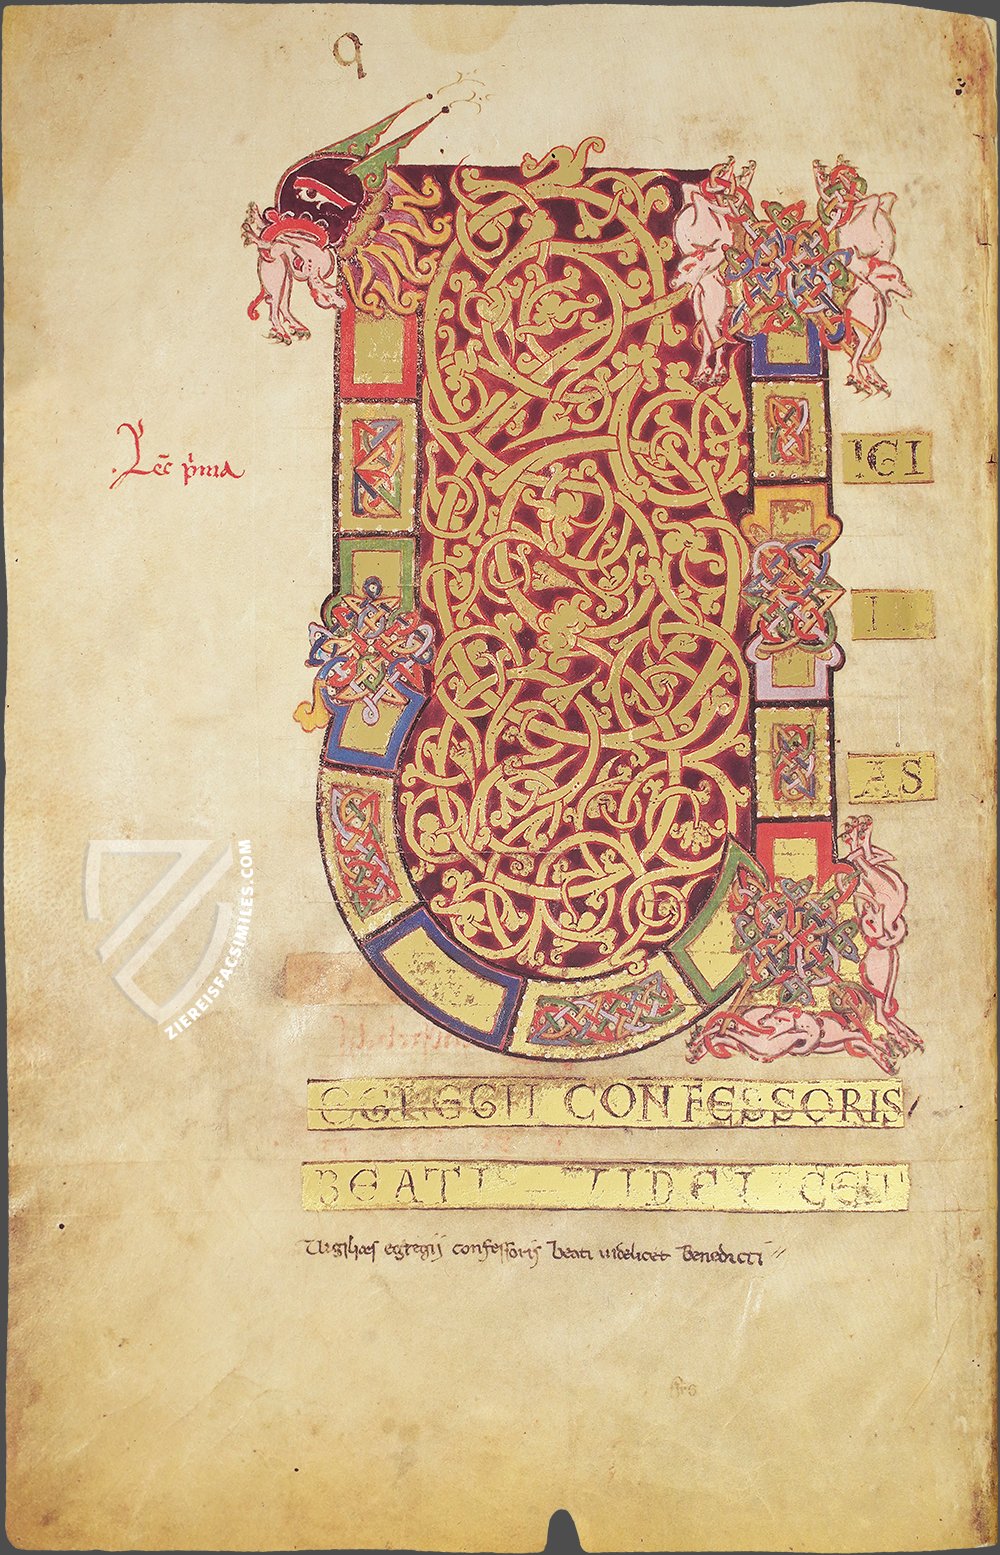 q
Lec͞ p̍ma
U
IGI
LI
AS
EGREGII CONFESSORIS
BEATI UIDELICET
Uigilias egregij confessoris beati uidelicet benedicti
ZIEREISFACSIMILES.COM